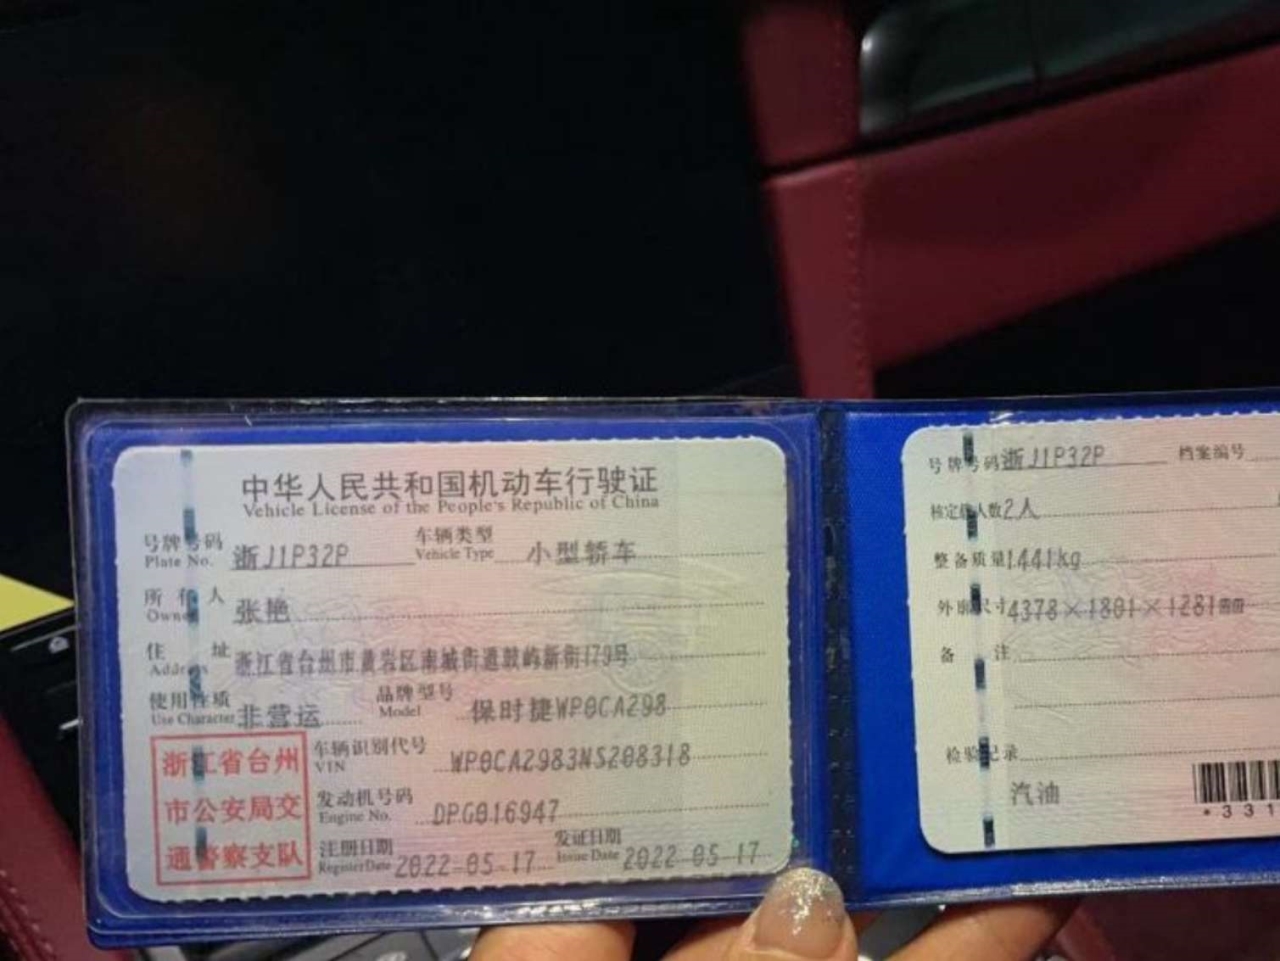 中华人民共和国机动车行驶证
Vehicle License of the People's Republic of China
号牌号码 浙J1P32P 车辆类型 小型轿车
Plate No. Vehicle Type
所有人 张艳
Owner
住址 浙江省台州市黄岩区南城街道鼓屿新街179号
Address
使用性质 非营运 品牌型号 保时捷WP0CA298
Use Character Model
浙江省台州
市公安局交
通警察支队
车辆识别代号 WP0CA2983NS208318
VIN
发动机号码 DPG016947
Engine No.
注册日期 2022-05-17 发证日期 2022-05-17
Register Date Issue Date
号牌号码 浙J1P32P 档案编号
核定载人数 2人
整备质量 1441kg
外廓尺寸 4378×1801×1281mm
备注
检验记录
汽油
*331